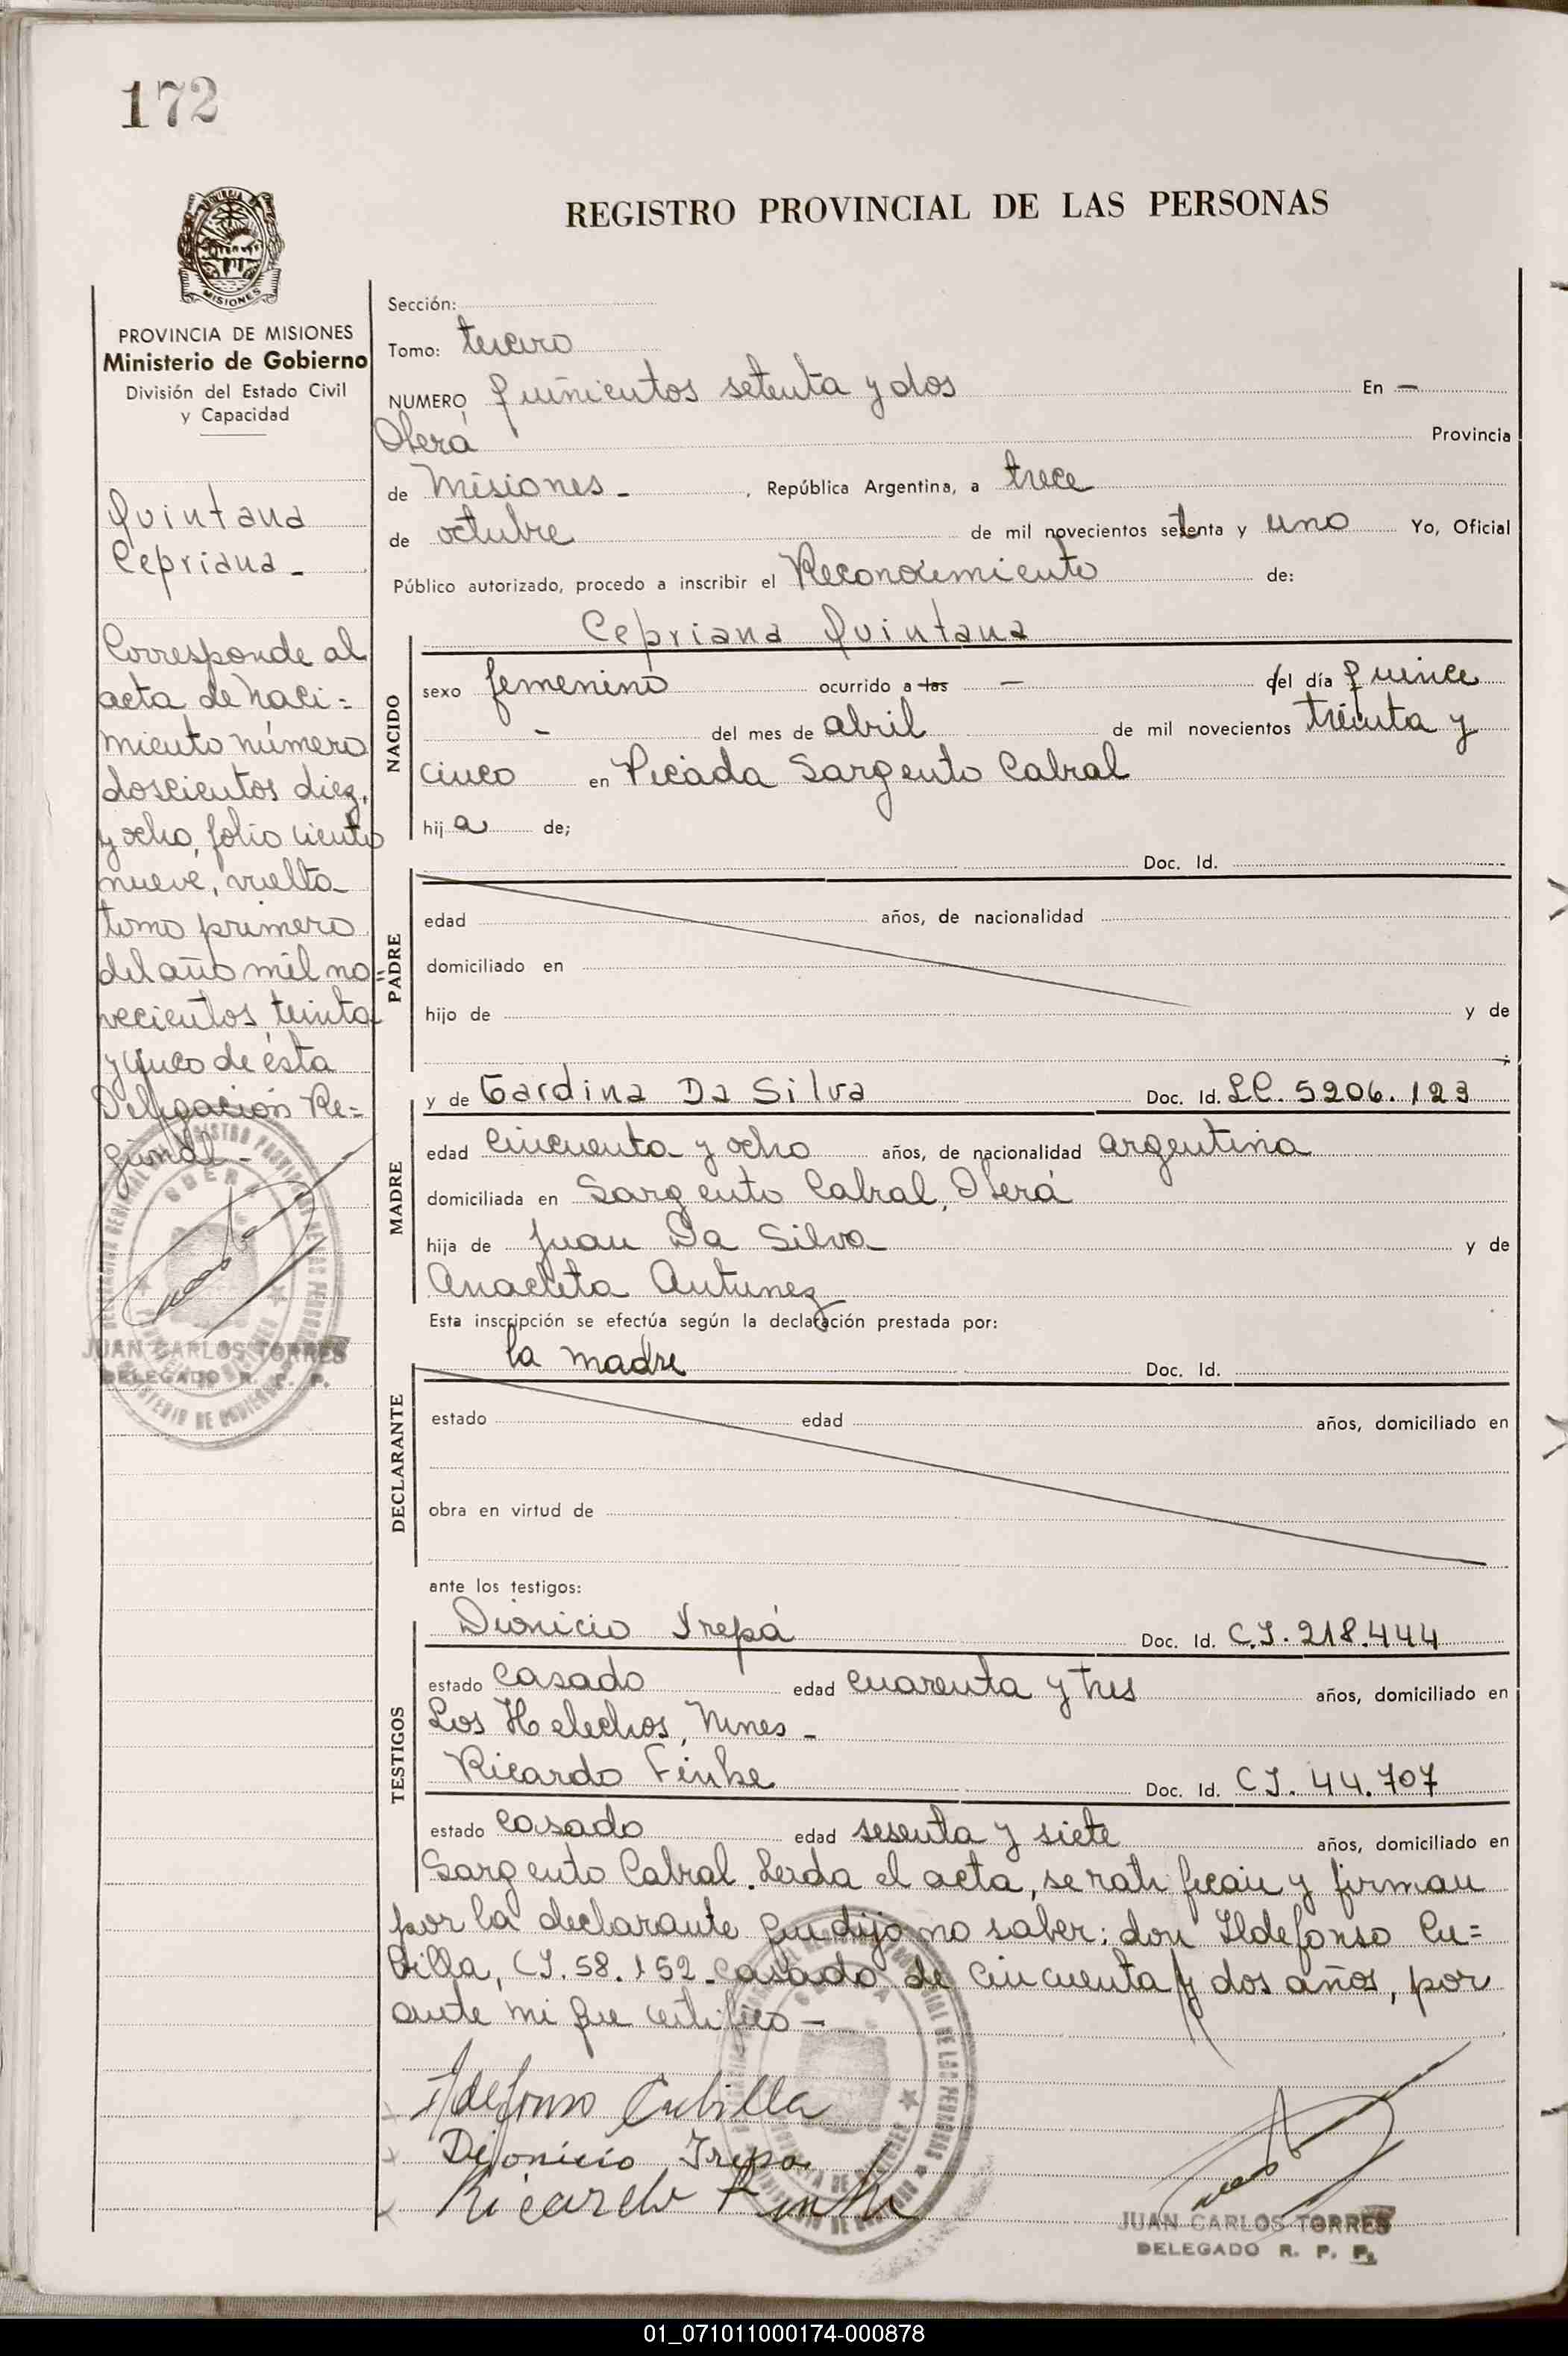 172
MISIONES
PROVINCIA DE MISIONES
Ministerio de Gobierno
División del Estado Civil
y Capacidad
Quintana
Cepriana -
Corresponde al
acta de naci=
miento número
doscientos diez
y ocho, folio ciento
nueve, vuelta
tomo primero
del año mil no=
vecientos, treinta
y cinco de ésta
Delegación Re=
gional -
JUAN CARLOS TORRES
DELEGADO R. P. P.
REGISTRO PROVINCIAL DE LAS PERSONAS
Sección:
Tomo: tercero
NUMERO quinientos setenta y dos En —
Oberá Provincia
de Misiones - , República Argentina, a trece
de octubre de mil novecientos setenta y uno Yo, Oficial
Público autorizado, procedo a inscribir el Reconocimiento de:
Cepriana Quintana
NACIDO
sexo femenino ocurrido a las — del día quince
- del mes de abril de mil novecientos treinta y
cinco en Picada Sargento Cabral
hij a de;
Doc. Id.
PADRE
edad años, de nacionalidad
domiciliado en
hijo de y de
;
MADRE
y de Gardina Da Silva Doc. Id. L.C. 5206.123
edad cincuenta y ocho años, de nacionalidad argentina
domiciliada en Sargento Cabral, Oberá
hija de Juan Da Silva y de
Anacleta Antunez
Esta inscripción se efectúa según la declaración prestada por:
la madre Doc. Id.
DECLARANTE
estado edad años, domiciliado en
obra en virtud de
ante los testigos:
TESTIGOS
Dionicio Yrepá Doc. Id. C.I. 218.444
estado casado edad cuarenta y tres años, domiciliado en
Los Helechos, Mnes -
Ricardo Finke Doc. Id. C.I. 44.707
estado casado edad sesenta y siete años, domiciliado en
Sargento Cabral. Leida el acta, se ratifican y firman
por la declarante que dijo no saber: don Ildefonso Cu=
billa, C.I. 58.152 - casado de cincuenta y dos años, por
ante mi que certifico —
Ildefonso Cubilla
Dionicio Irepa
Ricardo Finke
JUAN CARLOS TORRES
DELEGADO R. P. P.
01_071011000174-000878